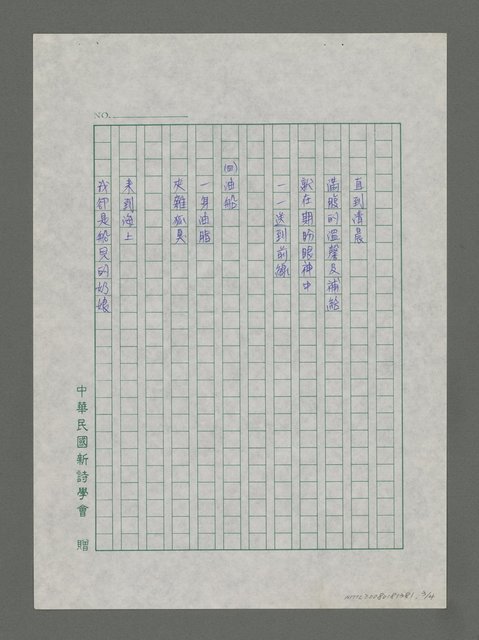 NO.
直到清晨
滿腹的溫馨及補給
就在期盼眼神中
一一送到前線
㈣油船
一身油脂
夾雜狐臭
來到海上
我卻是船兒的奶娘
中華民國新詩學會 贈
NMTL20080181381, 3/4